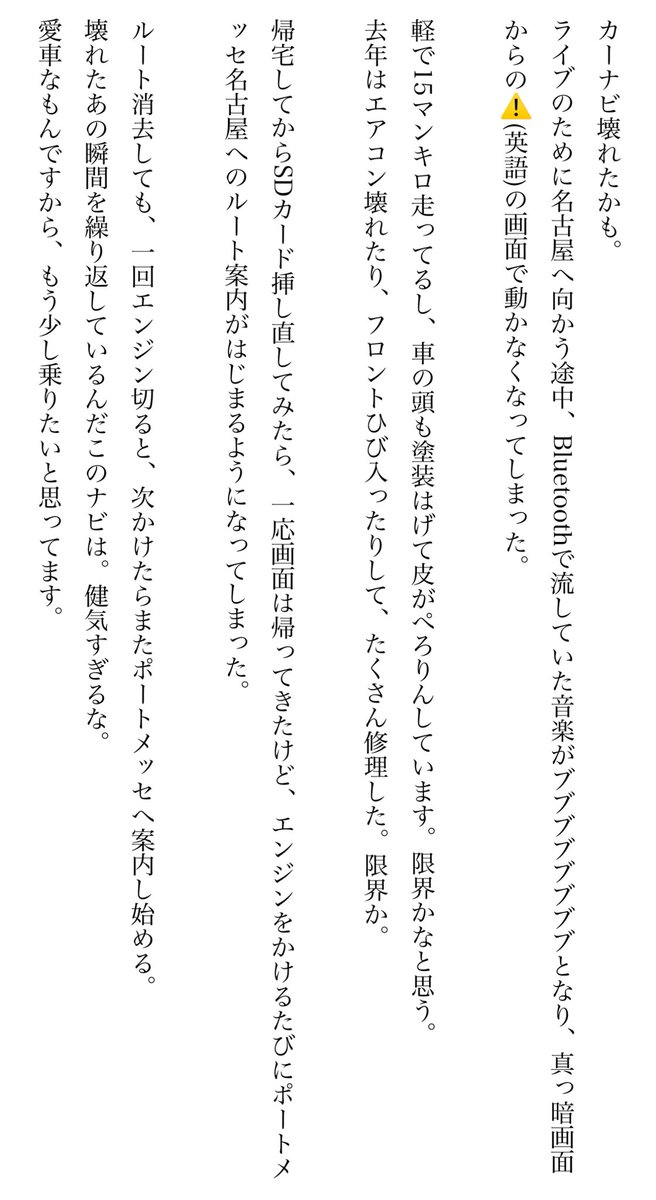 カーナビ壊れたかも。
ライブのために名古屋へ向かう途中、Bluetoothで流していた音楽がブブブブブブブブとなり、真っ暗画面
からの⚠️(英語)の画面で動かなくなってしまった。
軽で15マンキロ走ってるし、車の頭も塗装はげて皮がぺろりんしています。限界かなと思う。
去年はエアコン壊れたり、フロントひび入ったりして、たくさん修理した。限界か。
帰宅してからSDカード挿し直してみたら、一応画面は帰ってきたけど、エンジンをかけるたびにポートメ
ッセ名古屋へのルート案内がはじまるようになってしまった。
ルート消去しても、一回エンジン切ると、次かけたらまたポートメッセへ案内し始める。
壊れたあの瞬間を繰り返しているんだこのナビは。健気すぎるな。
愛車なもんですから、もう少し乗りたいと思ってます。